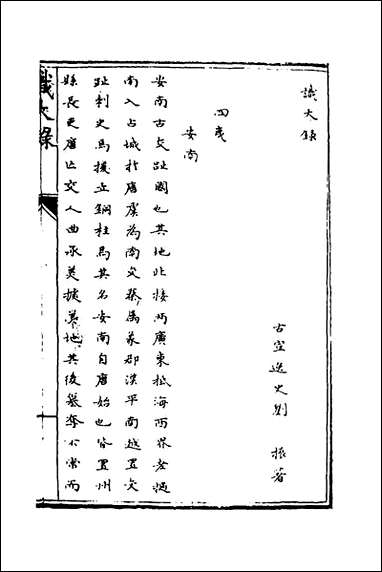 識大錄
古宣逸史劉 振著
四夷
安南
安南古交趾國也其地北接兩廣東抵海西界老撾
南入占城於唐虞為南交秦為象郡漢平南越置交
趾刺史馬援立銅柱焉其名安南自唐始也皆置州
縣長吏唐亡交人曲承美據其地其後纂奪不常而
識大錄